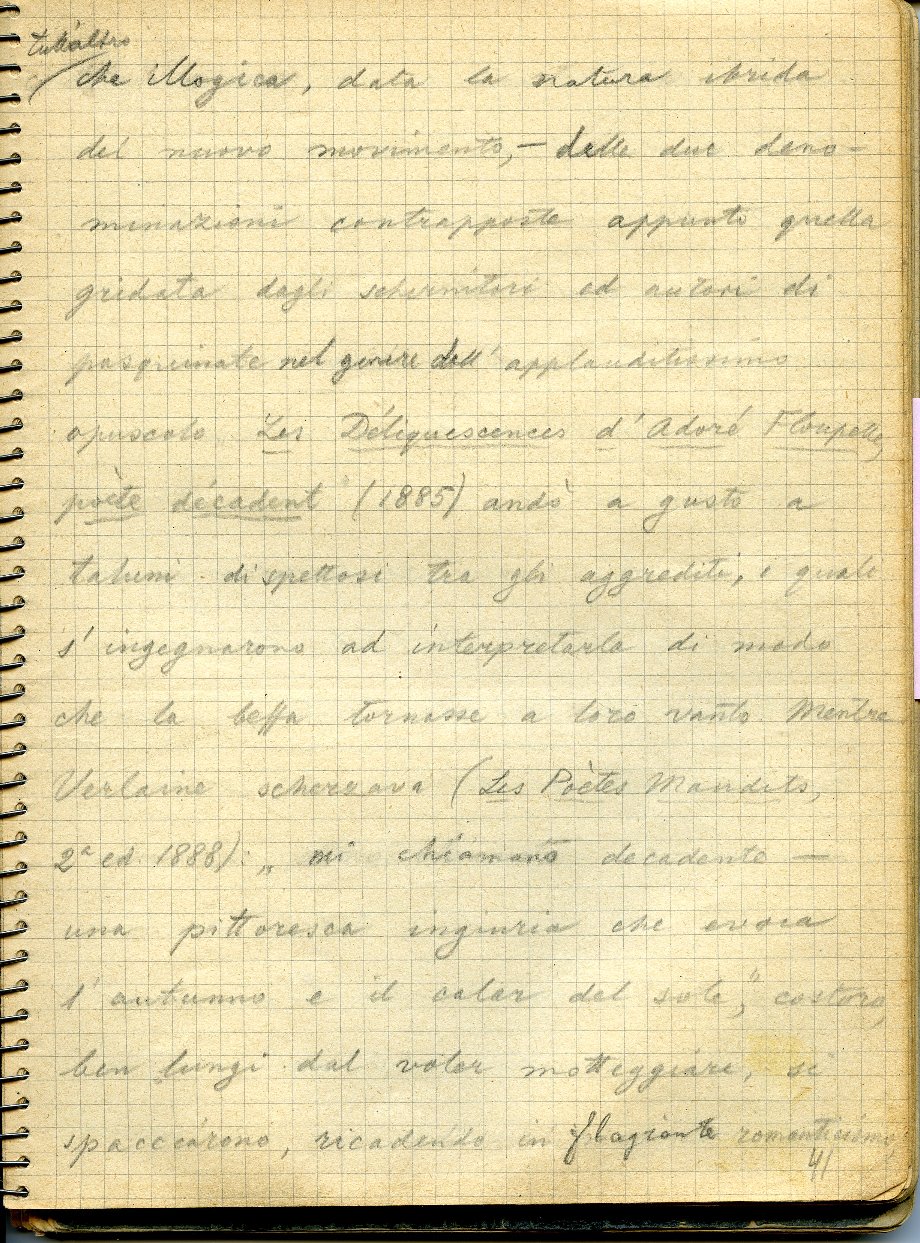 tutt'altro
che illogica, data la natura ibrida
del nuovo movimento, — delle due deno-
minazioni contrapposte appunto quella
gridata dagli schernitori ed autori di
pasquinate nel genere dell' applauditissimo
opuscolo Les Déliquescences d' Adoré Floupette,
poète décadent" (1885) andò a gusto a
taluni dispettosi tra gli aggrediti, i quali
s' ingegnarono ad interpretarla di modo
che la beffa tornasse a loro vanto. Mentre
Verlaine scherzava (Les Poètes Maudits,
2ª ed. 1888): „ mi chiamano decadente —
una pittoresca ingiuria che evoca
l' autunno e il calar del sole," costoro,
ben lungi dal voler motteggiare, si
spacciarono, ricadendo in flagrante romanticismo,
41